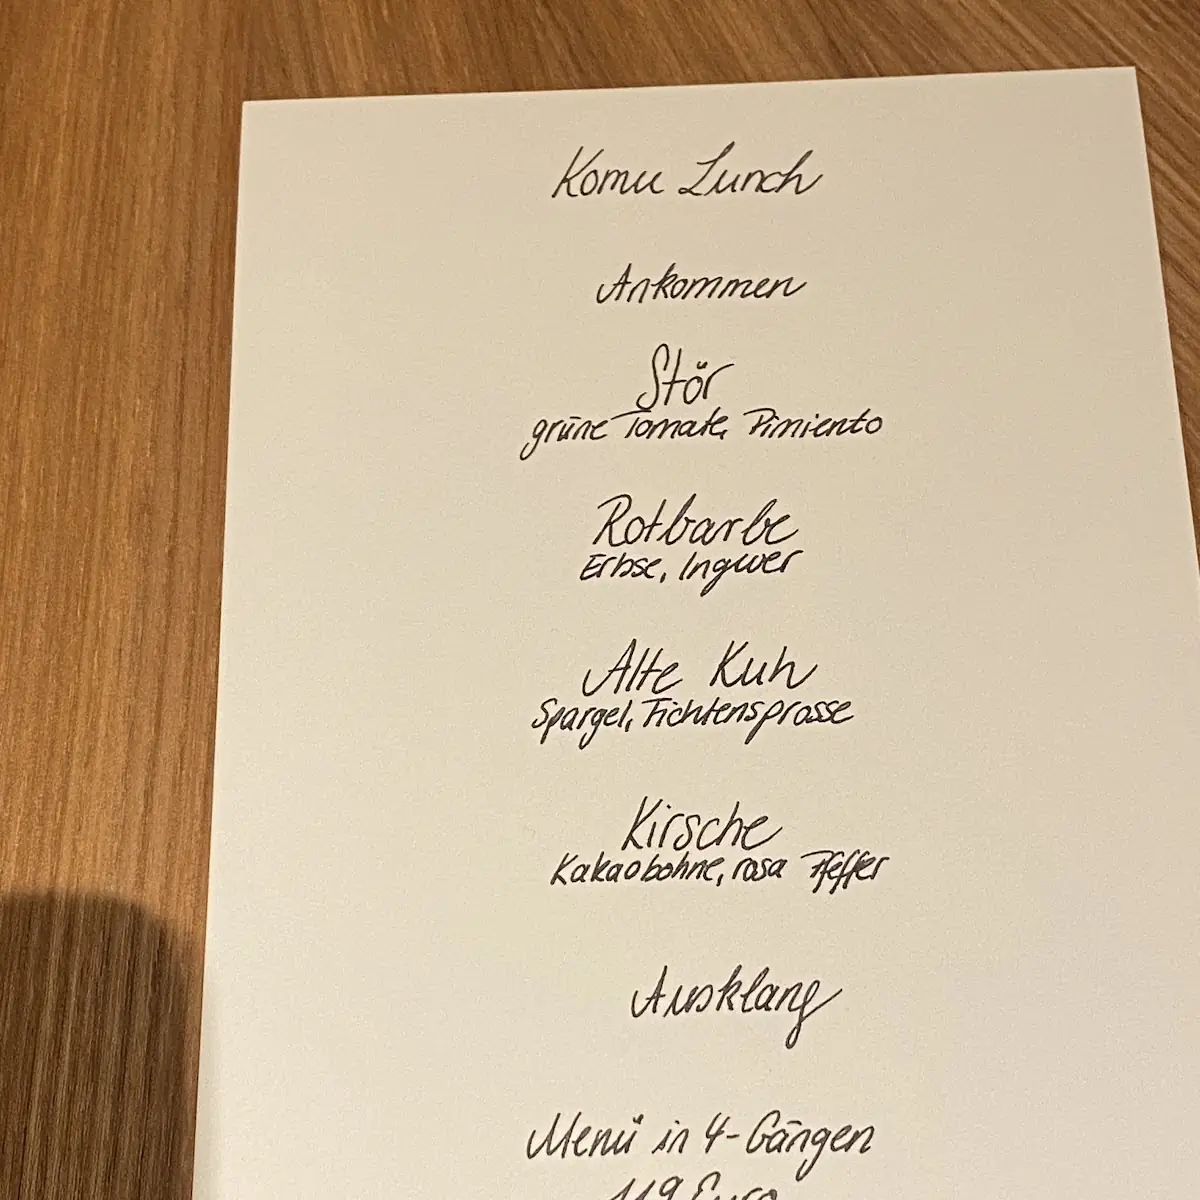 Komu Lunch
Ankommen
Stör
grüne Tomate, Pimiento
Rotbarbe
Erbse, Ingwer
Alte Kuh
Spargel, Fichtensprosse
Kirsche
Kakaobohne, rosa Pfeffer
Ausklang
Menü in 4-Gängen
119 Euro